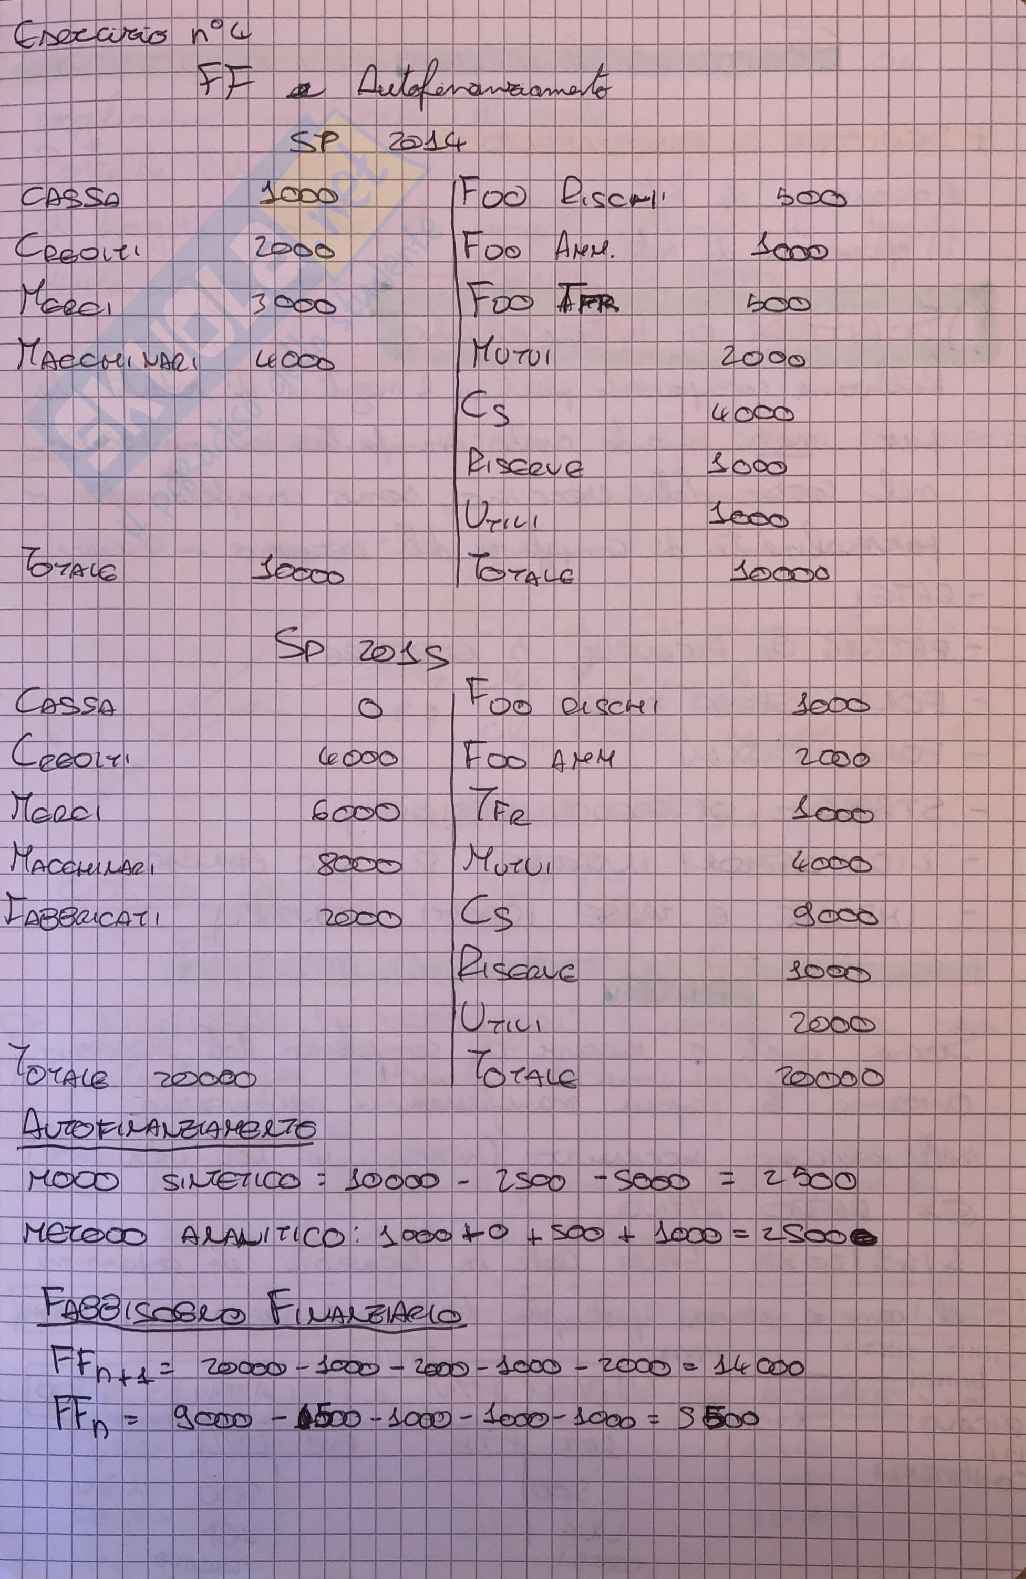 Esercizio n° 4
FF e Autofinanziamento
SP 2014
CASSA 1000 FDO RISCHI 500
CREDITI 2000 FDO AMM. 1000
MERCI 3000 FDO TFR 500
MACCHINARI 4000 MUTUI 2000
CS 4000
RISERVE 1000
UTILI 1000
TOTALE 10000 TOTALE 10000
SP 2015
CASSA 0 FDO RISCHI 1000
CREDITI 4000 FDO AMM 2000
MERCI 6000 TFR 1000
MACCHINARI 8000 MUTUI 4000
FABBRICATI 2000 CS 9000
RISERVE 1000
UTILI 2000
TOTALE 20000 TOTALE 20000
AUTOFINANZIAMENTO
MODO SINTETICO = 10000 - 2500 - 5000 = 2500
METODO ANALITICO: 1000 + 0 + 500 + 1000 = 2500
FABBISOGNO FINANZIARIO
FFn+1 = 20000 - 1000 - 2000 - 1000 - 2000 = 14000
FFn = 9000 - 500 - 1000 - 1000 - 1000 = 5500
SKUOLA.net